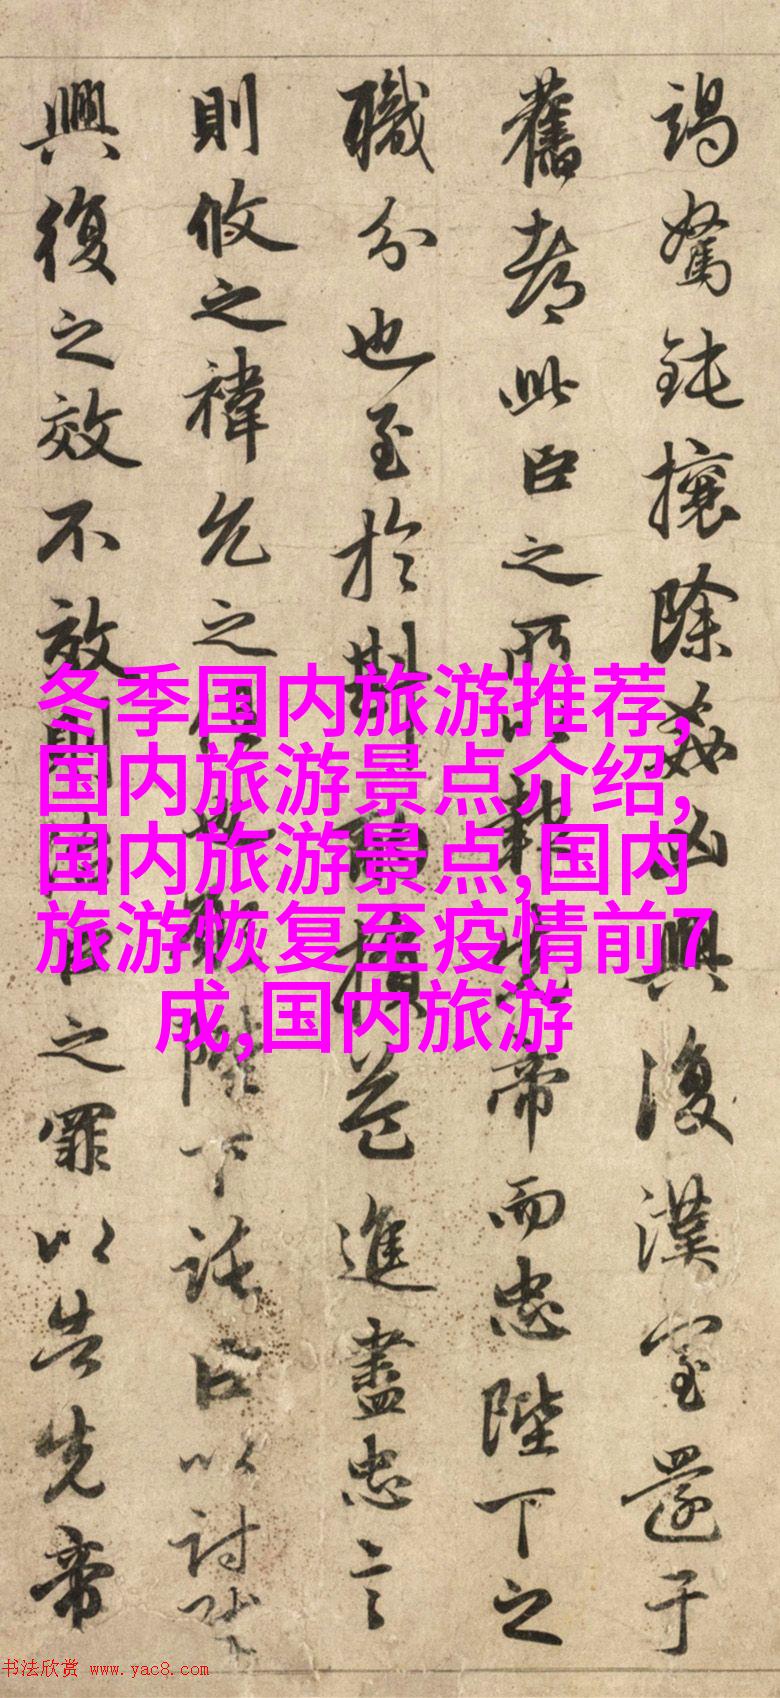 竭駑鈍攘除姦凶興復漢室還于
舊都此臣之所以報先帝而忠陛下之
職分也至於斟酌損益進盡忠言
則攸之禕允之任願陛下託臣以討賊
興復之效不效則治臣之罪以告先帝
冬季国内旅游推荐,
国内旅游景点介绍,
国内旅游景点,国内
旅游恢复至疫情前7
成,国内旅游
书法欣赏 www.yac8.com